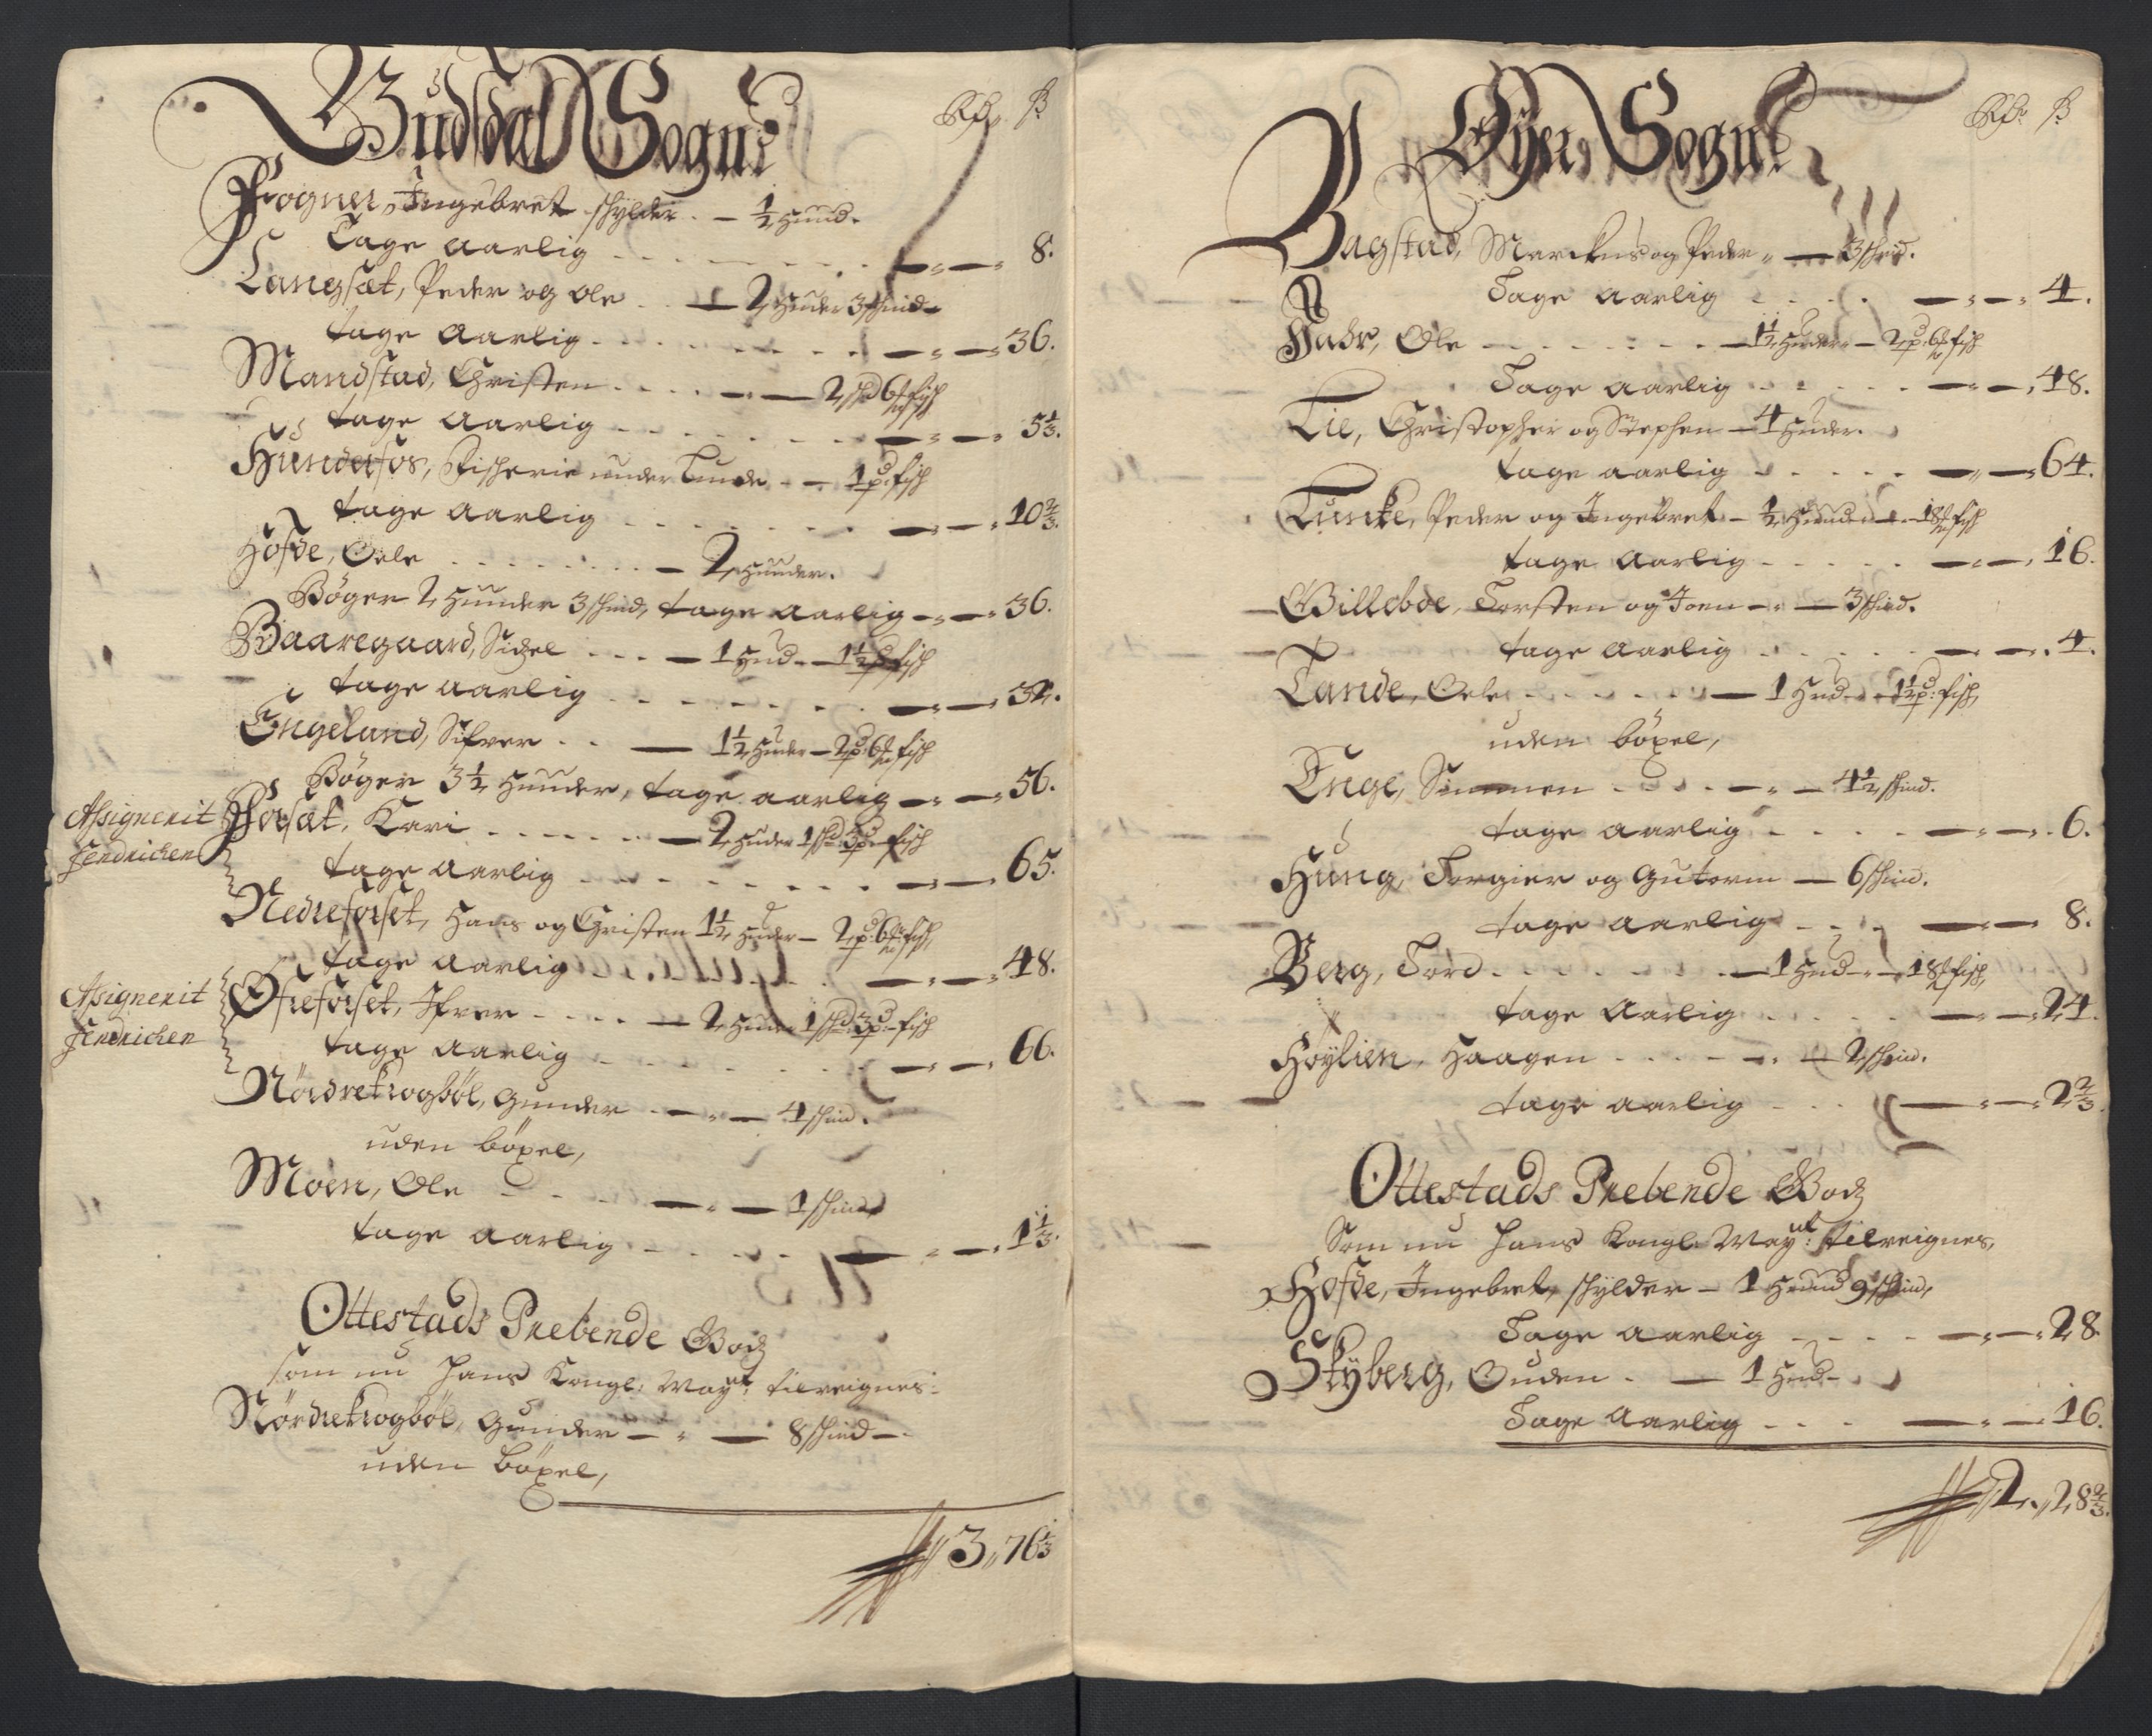 Gudsdal Sogn
Rdr ß
Fogner, Ingebret schylder - ½ Hund.
Tage aarlig - 8.
Langsæt, Peder og Ole - 2 Huder 3 schind
tage aarlig - 36.
Mandstad, Christen - 2 schd 6 fisch
tage aarlig - 5⅓.
Hunderfos, Fischerie under Lunde - 1 pd fisch
tage aarlig - 10⅔.
Hofde, Oele - 2 Hunder.
Bøger 2 Hunder 3 schind, tage aarlig - 36.
Baaregaard, Sidzel - 1 Hud - 1½ pd fisch
tage aarlig - 32.
Engeland, Sifver - 1½ Huder - 2 pd: 6 fisch
Bøger 3½ Hunder, tage aarlig - 56.
Assignerit
Fendrichen
Forsæt, Kari - 2 Huder 1 schd 3 pd fisch
tage aarlig - 65.
Nedreforset, Hans og Christen 1½ Huder - 2 pd: 6 fisch,
tage aarlig - 48.
Assignerit
Fendrichen
Øfreforset, Ifver - 2 Huder 1 schd 3 pd: fisch
tage aarlig - 66.
Nordrekrogbøl, Gunder - 4 schind.
uden böxel,
Moen, Ole - 1 schind
tage aarlig - 1⅓.
Ottestads Prebende Godz
som nu Hans Kongl: Mayt: tilreignes:
Nördrekrogböl, Gunder - 8 schind -
uden böxel,
3,, 76⅓
Øyer Sogn
Rdr ß
Bagstad, Marckus og Peder - 3 schind.
Tage aarlig - 4.
Jahr, Ole - 1½ Huder - 2 pd: 6 fisch
Tage aarlig - 48.
Lie, Christopher og Stephen - 4 Huder.
tage aarlig - 64.
Lunke, Peder og Ingebret - ½ Hund - 18 fisch
tage aarlig - 16.
Gilleboe, Torsten og Joen - 3 schind.
tage aarlig - 4.
Lande, Oele - 1 Hud - 1½ pd: fisch,
uden böxel,
Enge, Simmen - 4½ schind.
tage aarlig - 6.
Hung, Torgier og Gutorm - 6 schind.
tage aarlig - 8.
Berg, Tord - 1 Hud - 18 fisch,
tage aarlig - 24.
Høylien, Haagen - 2 schind.
tage aarlig - 2⅔.
Ottestads Prebende Godz
Som nu Hans Kongl. Mayt: tilreignes,
Hofde, Ingebret, schylder - 1 Hund 9 schind,
Tage aarlig - 28.
Skyberg, Ouden - 1 Hud -
Tage aarlig - 16.
2,, 28⅔.